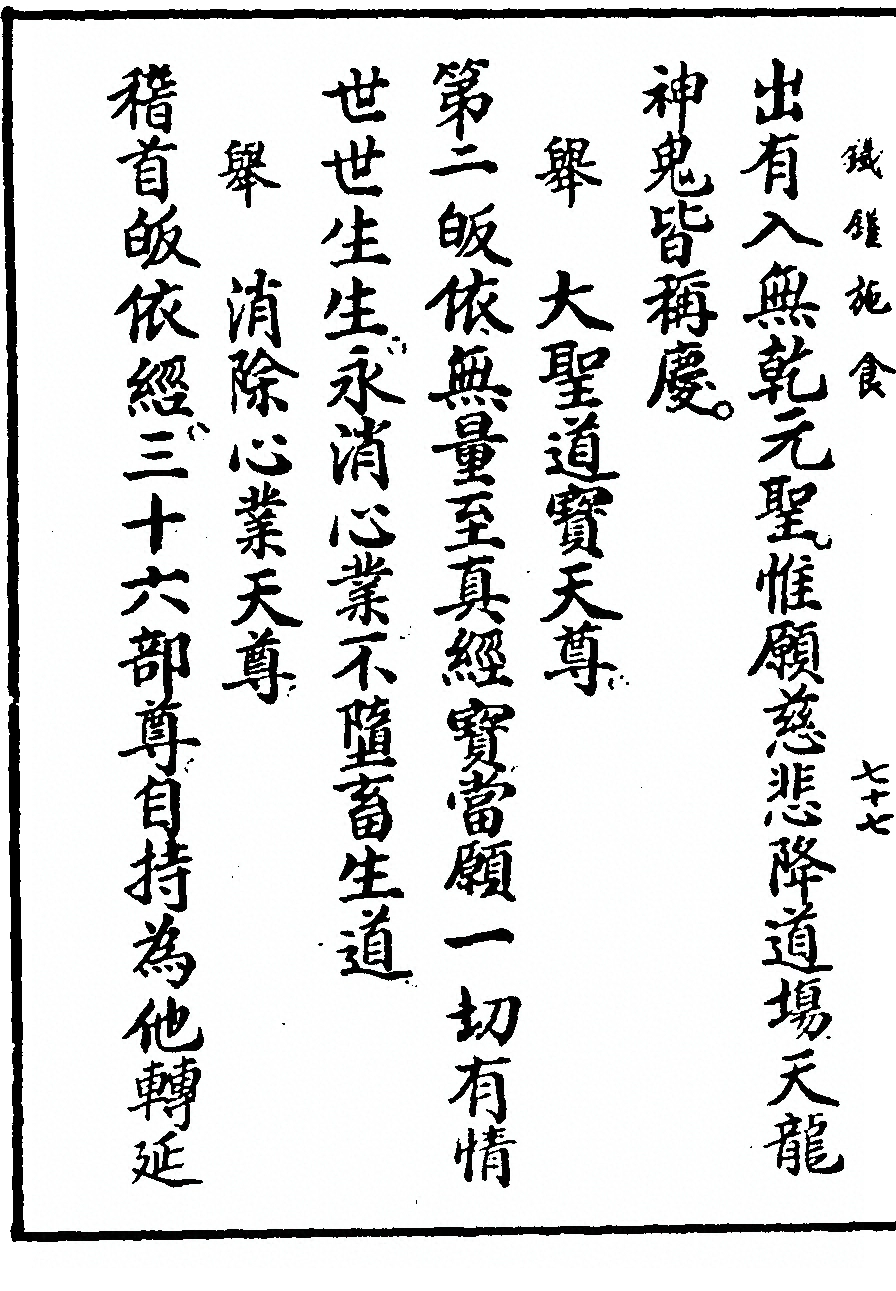 鐵鑵施食 七十七
出有入無乾元聖惟願慈悲降道場天龍
神鬼皆稱慶。
舉 大聖道寶天尊
第二皈依無量至真經寶當願一切有情
世世生生永消心業不墮畜生道
舉 消除心業天尊
稽首皈依經三十六部尊自持為他轉延